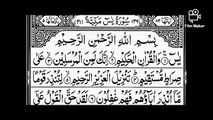 Film Maker
سُوْرَةُ يٰسٓ مَكِّيَّةٌ
بِسْمِ اللهِ الرَّحْمٰنِ الرَّحِيْمِ
يٰسٓ وَالْقُرْاٰنِ الْحَكِيْمِ اِنَّكَ لَمِنَ الْمُرْسَلِيْنَ عَلٰى
صِرَاطٍ مُّسْتَقِيْمٍ تَنْزِيْلَ الْعَزِيْزِ الرَّحِيْمِ لِتُنْذِرَ قَوْمًا
مَّآ اُنْذِرَ اٰبَآؤُهُمْ فَهُمْ غٰفِلُوْنَ لَقَدْ حَقَّ الْقَوْلُ